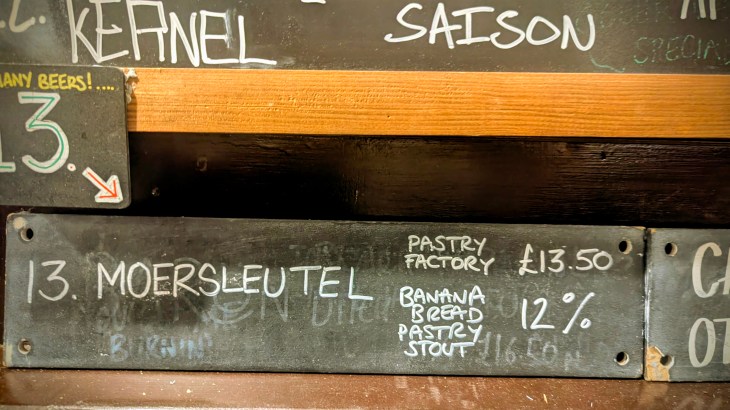 KERNEL
SAISON
SPECIAL
MANY BEERS!....
13.
13. MOERSLEUTEL
PASTRY
FACTORY
£13.50
BANANA
BREAD
PASTRY
STOUT
12%
BURNIN'
£16.50